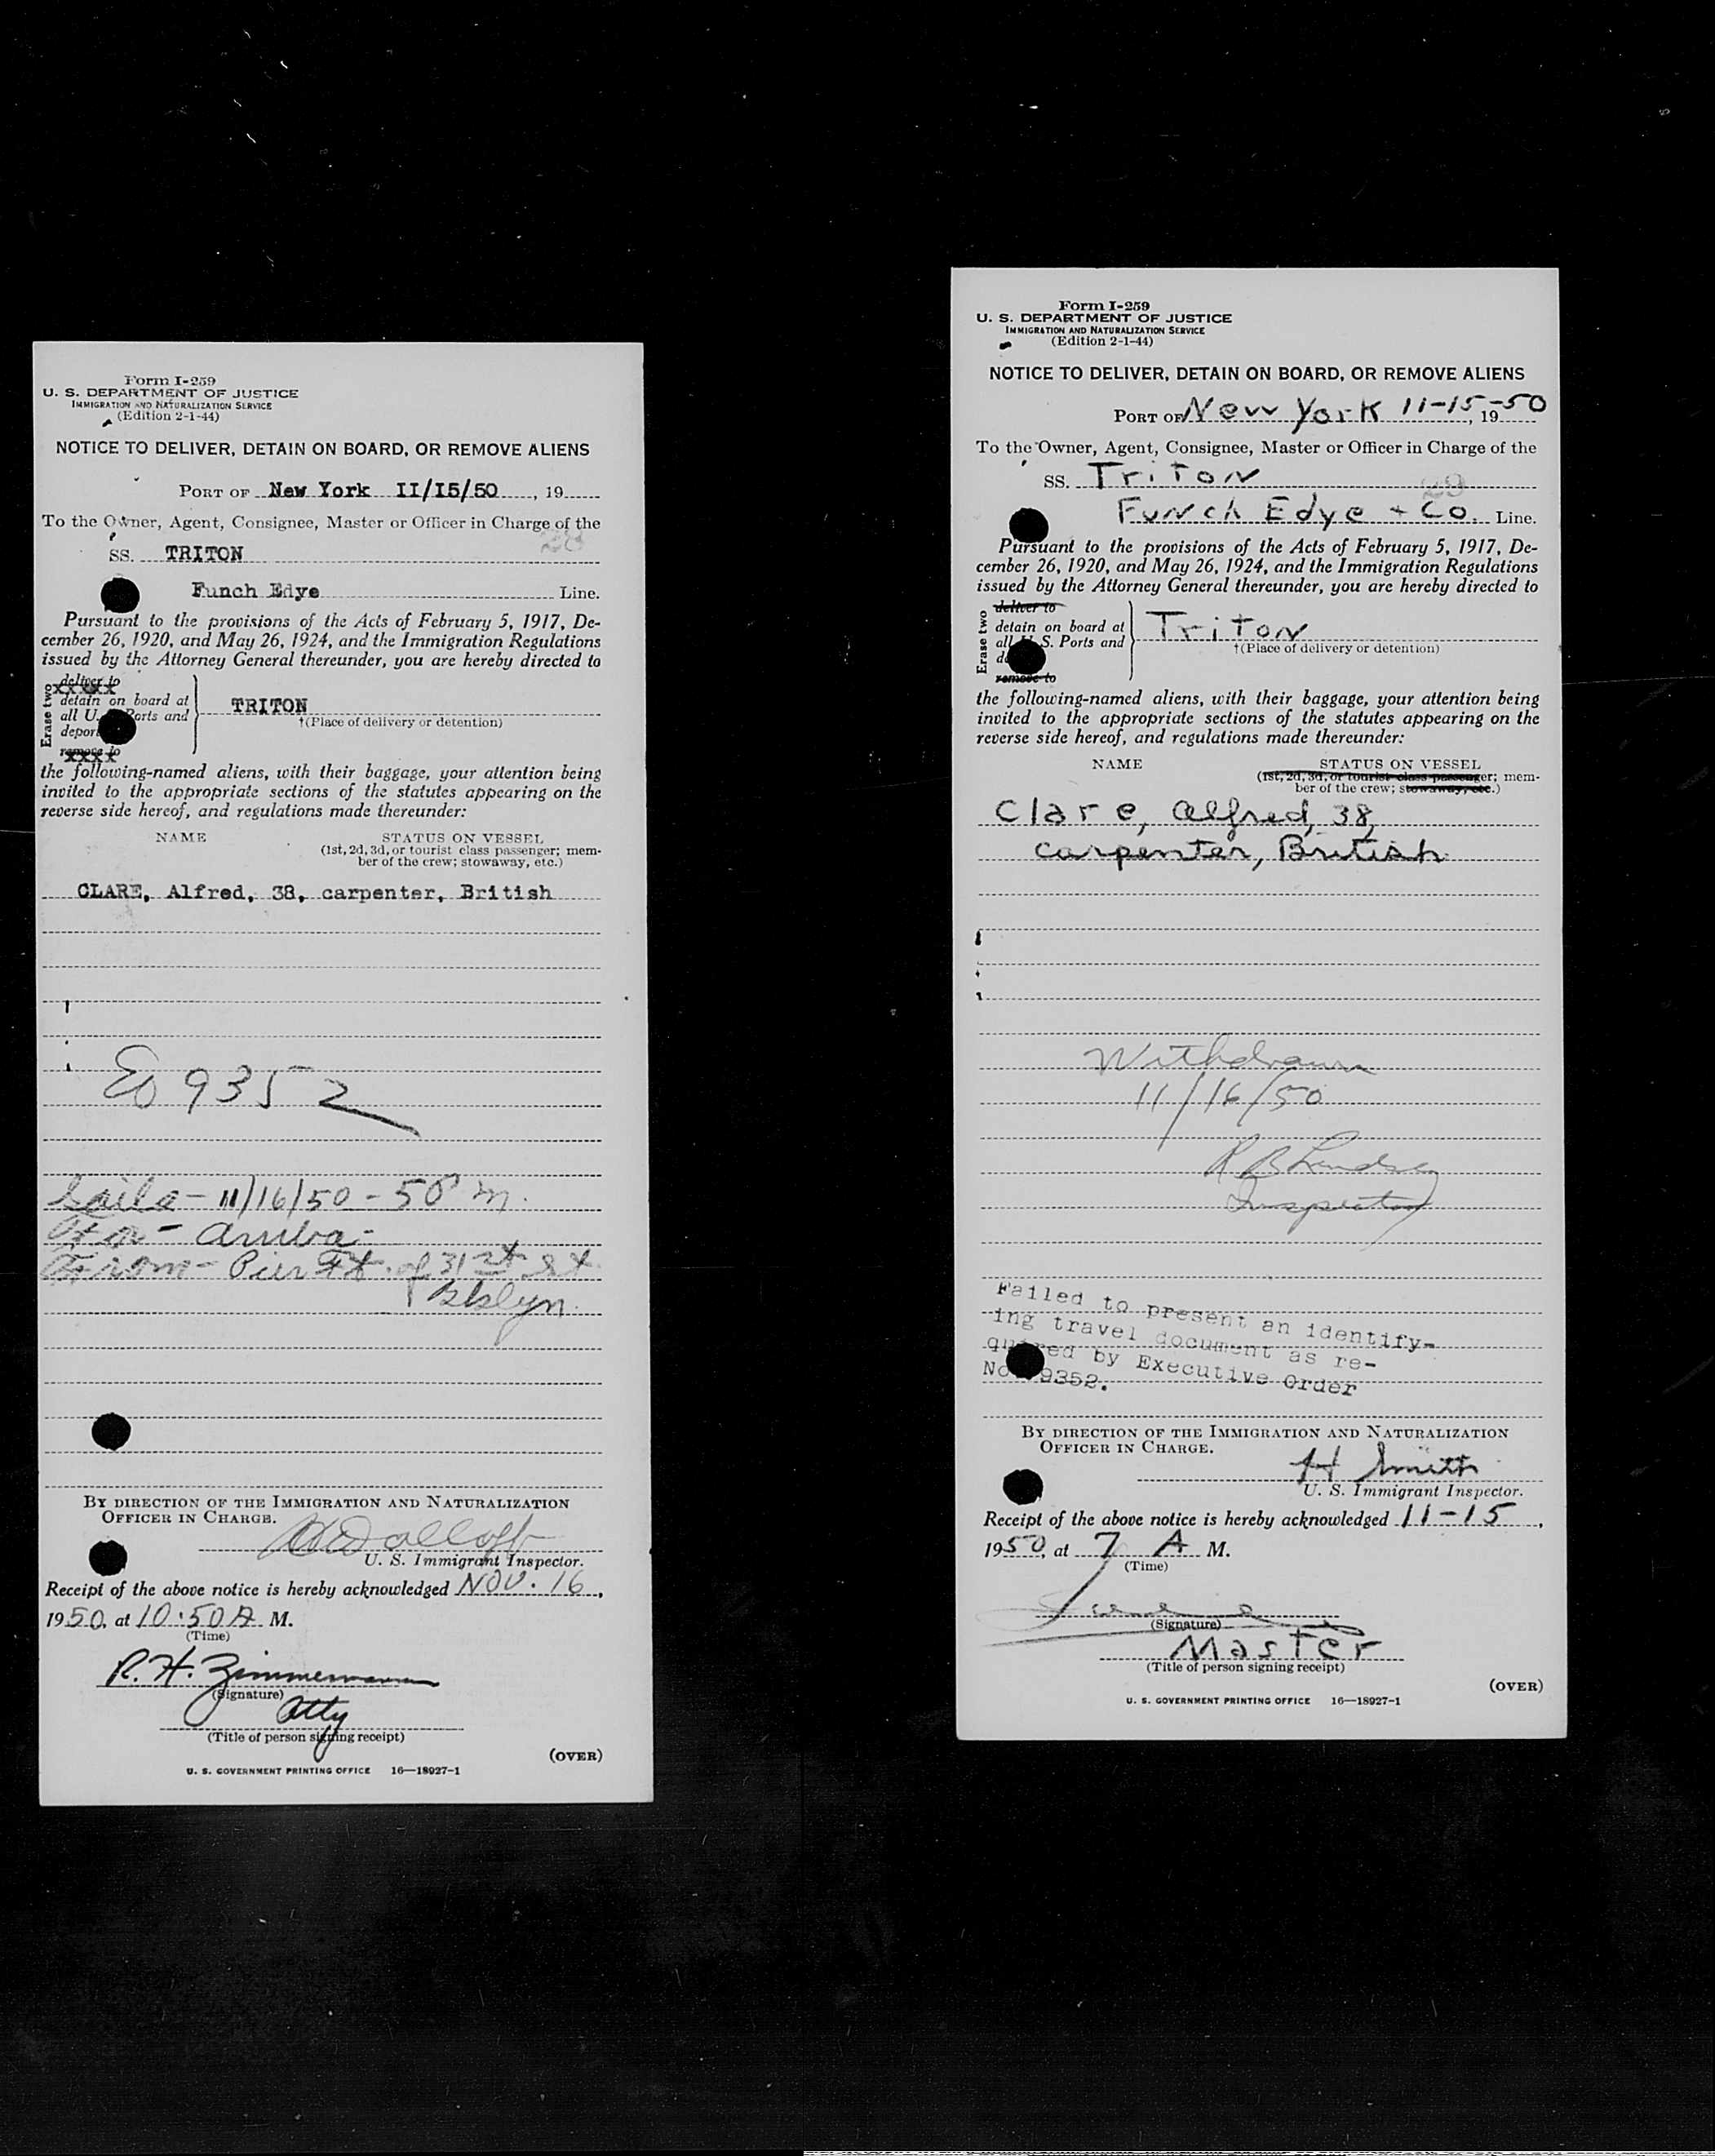 Form I-259
U. S. DEPARTMENT OF JUSTICE
IMMIGRATION AND NATURALIZATION SERVICE
(Edition 2-1-44)
NOTICE TO DELIVER, DETAIN ON BOARD, OR REMOVE ALIENS
PORT OF New York 11/15/50, 19
To the Owner, Agent, Consignee, Master or Officer in Charge of the
28
SS. TRITON
Funch Edye Line.
Pursuant to the provisions of the Acts of February 5, 1917, De-
cember 26, 1920, and May 26, 1924, and the Immigration Regulations
issued by the Attorney General thereunder, you are hereby directed to
Erase two
deliver to
detain on board at
all U. Ports and
depor
remove to
TRITON
†(Place of delivery or detention)
the following-named aliens, with their baggage, your attention being
invited to the appropriate sections of the statutes appearing on the
reverse side hereof, and regulations made thereunder:
NAME STATUS ON VESSEL
(1st, 2d, 3d, or tourist class passenger; mem-
ber of the crew; stowaway, etc.)
CLARE, Alfred, 38, carpenter, British
EO 9352
Sails - 11/16/50 - 5 P m.
For - Aruba -
From - Pier Ft. of 31st St.
Bklyn.
BY DIRECTION OF THE IMMIGRATION AND NATURALIZATION
OFFICER IN CHARGE.
U. S. Immigrant Inspector.
Receipt of the above notice is hereby acknowledged NOV. 16,
1950, at 10:50 A M.
(Time)
R. H. Zimmermann
(Signature)
Atty
(Title of person signing receipt)
(OVER)
U. S. GOVERNMENT PRINTING OFFICE 16—18927-1
Form I-259
U. S. DEPARTMENT OF JUSTICE
IMMIGRATION AND NATURALIZATION SERVICE
(Edition 2-1-44)
NOTICE TO DELIVER, DETAIN ON BOARD, OR REMOVE ALIENS
PORT OF New York 11-15-50, 19
To the Owner, Agent, Consignee, Master or Officer in Charge of the
SS. Triton
29
Funch Edye + Co. Line.
Pursuant to the provisions of the Acts of February 5, 1917, De-
cember 26, 1920, and May 26, 1924, and the Immigration Regulations
issued by the Attorney General thereunder, you are hereby directed to
Erase two
deliver to
detain on board at
all U. S. Ports and
d
remove to
Triton
†(Place of delivery or detention)
the following-named aliens, with their baggage, your attention being
invited to the appropriate sections of the statutes appearing on the
reverse side hereof, and regulations made thereunder:
NAME STATUS ON VESSEL
(1st, 2d, 3d, or tourist class passenger; mem-
ber of the crew; stowaway, etc.)
Clare, Alfred, 38,
carpenter, British
Withdrawn
11/16/50
R B Lindsey
Inspector
Failed to present an identify-
ing travel document as re-
quired by Executive Order
No. 9352.
BY DIRECTION OF THE IMMIGRATION AND NATURALIZATION
OFFICER IN CHARGE.
H Smith
U. S. Immigrant Inspector.
Receipt of the above notice is hereby acknowledged 11-15,
1950, at 7 A M.
(Time)
(Signature)
Master
(Title of person signing receipt)
(OVER)
U. S. GOVERNMENT PRINTING OFFICE 16—18927-1